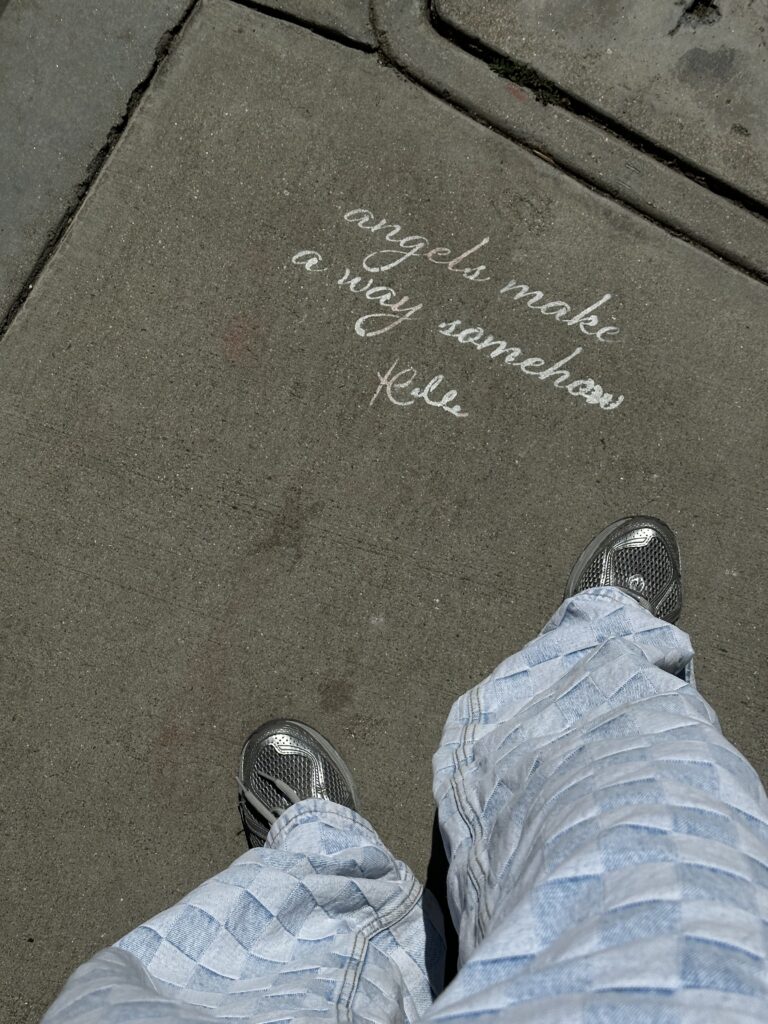 angels make
a way somehow